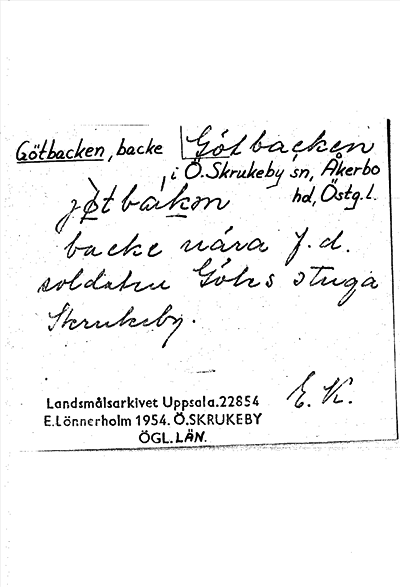 Götbacken, backe Götbacken
i Ö. Skrukeby sn, Åkerbo
hd, Östg. l.
backe nära f. d.
soldaten Göts stuga
Skrukeby.
E. K.
Landsmålsarkivet Uppsala. 22854
E. Lönnerholm 1954. Ö. SKRUKEBY
ÖGL. LÄN.